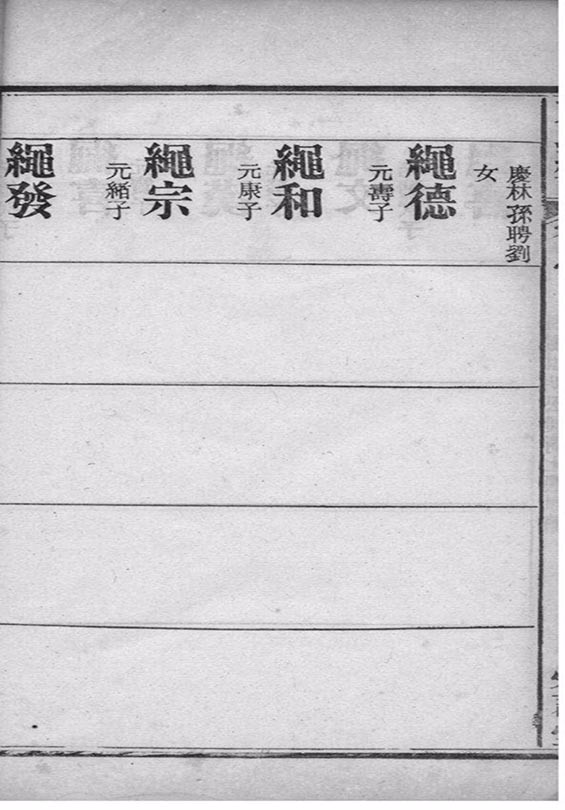 慶林孫聘劉
女
繩德
元壽子
繩和
元康子
繩宗
元緒子
繩發